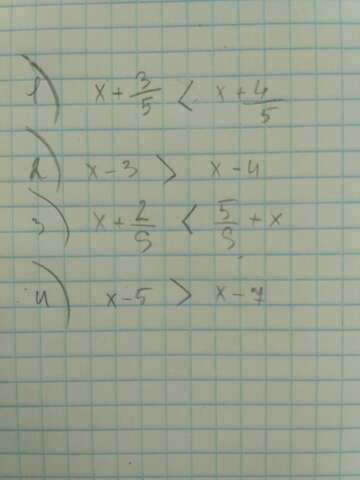 1) x + 3/5 < x + 4/5
2) x - 3 > x - 4
3) x + 2/9 < 5/9 + x
4) x - 5 > x - 7